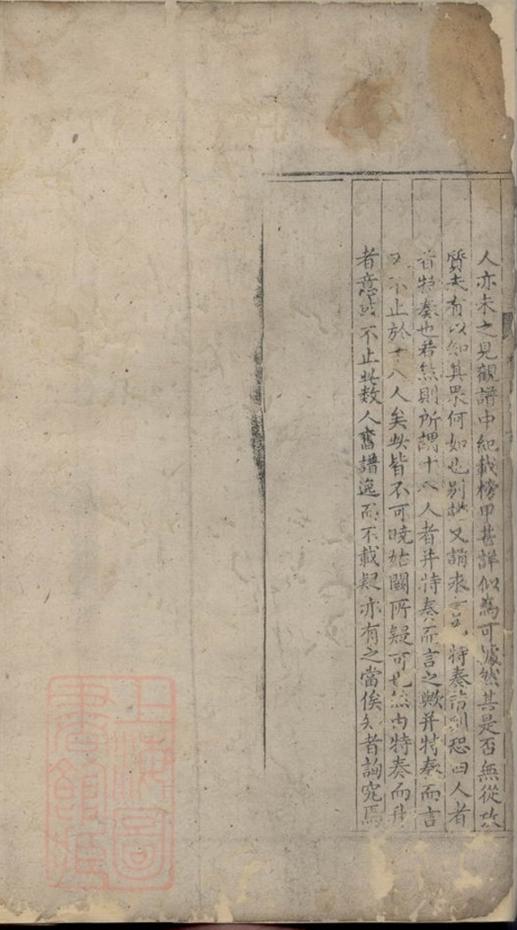 人亦未之見觀譜中紀載榜甲甚詳似為可據然其是否無從攷
質未有以知其果何如也別譜又誦求特奏恐四人者
皆特奏也若然則所謂十八人者并特奏而言之歟并特奏而言
又不止於十八人矣此皆不可曉姑闕所疑可也然由特奏而
者意或不止此数人舊譜逸而不載疑亦有之當俟知者詢究焉
上海圖
書館藏